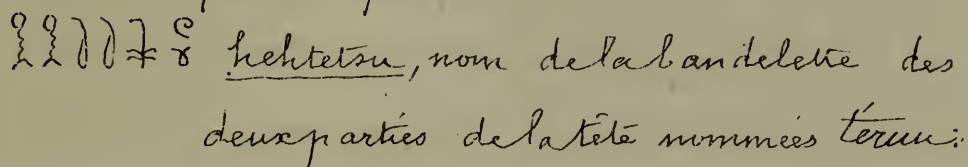 hehtetsu, nom de la bandelette des
deux parties de la tête nommées